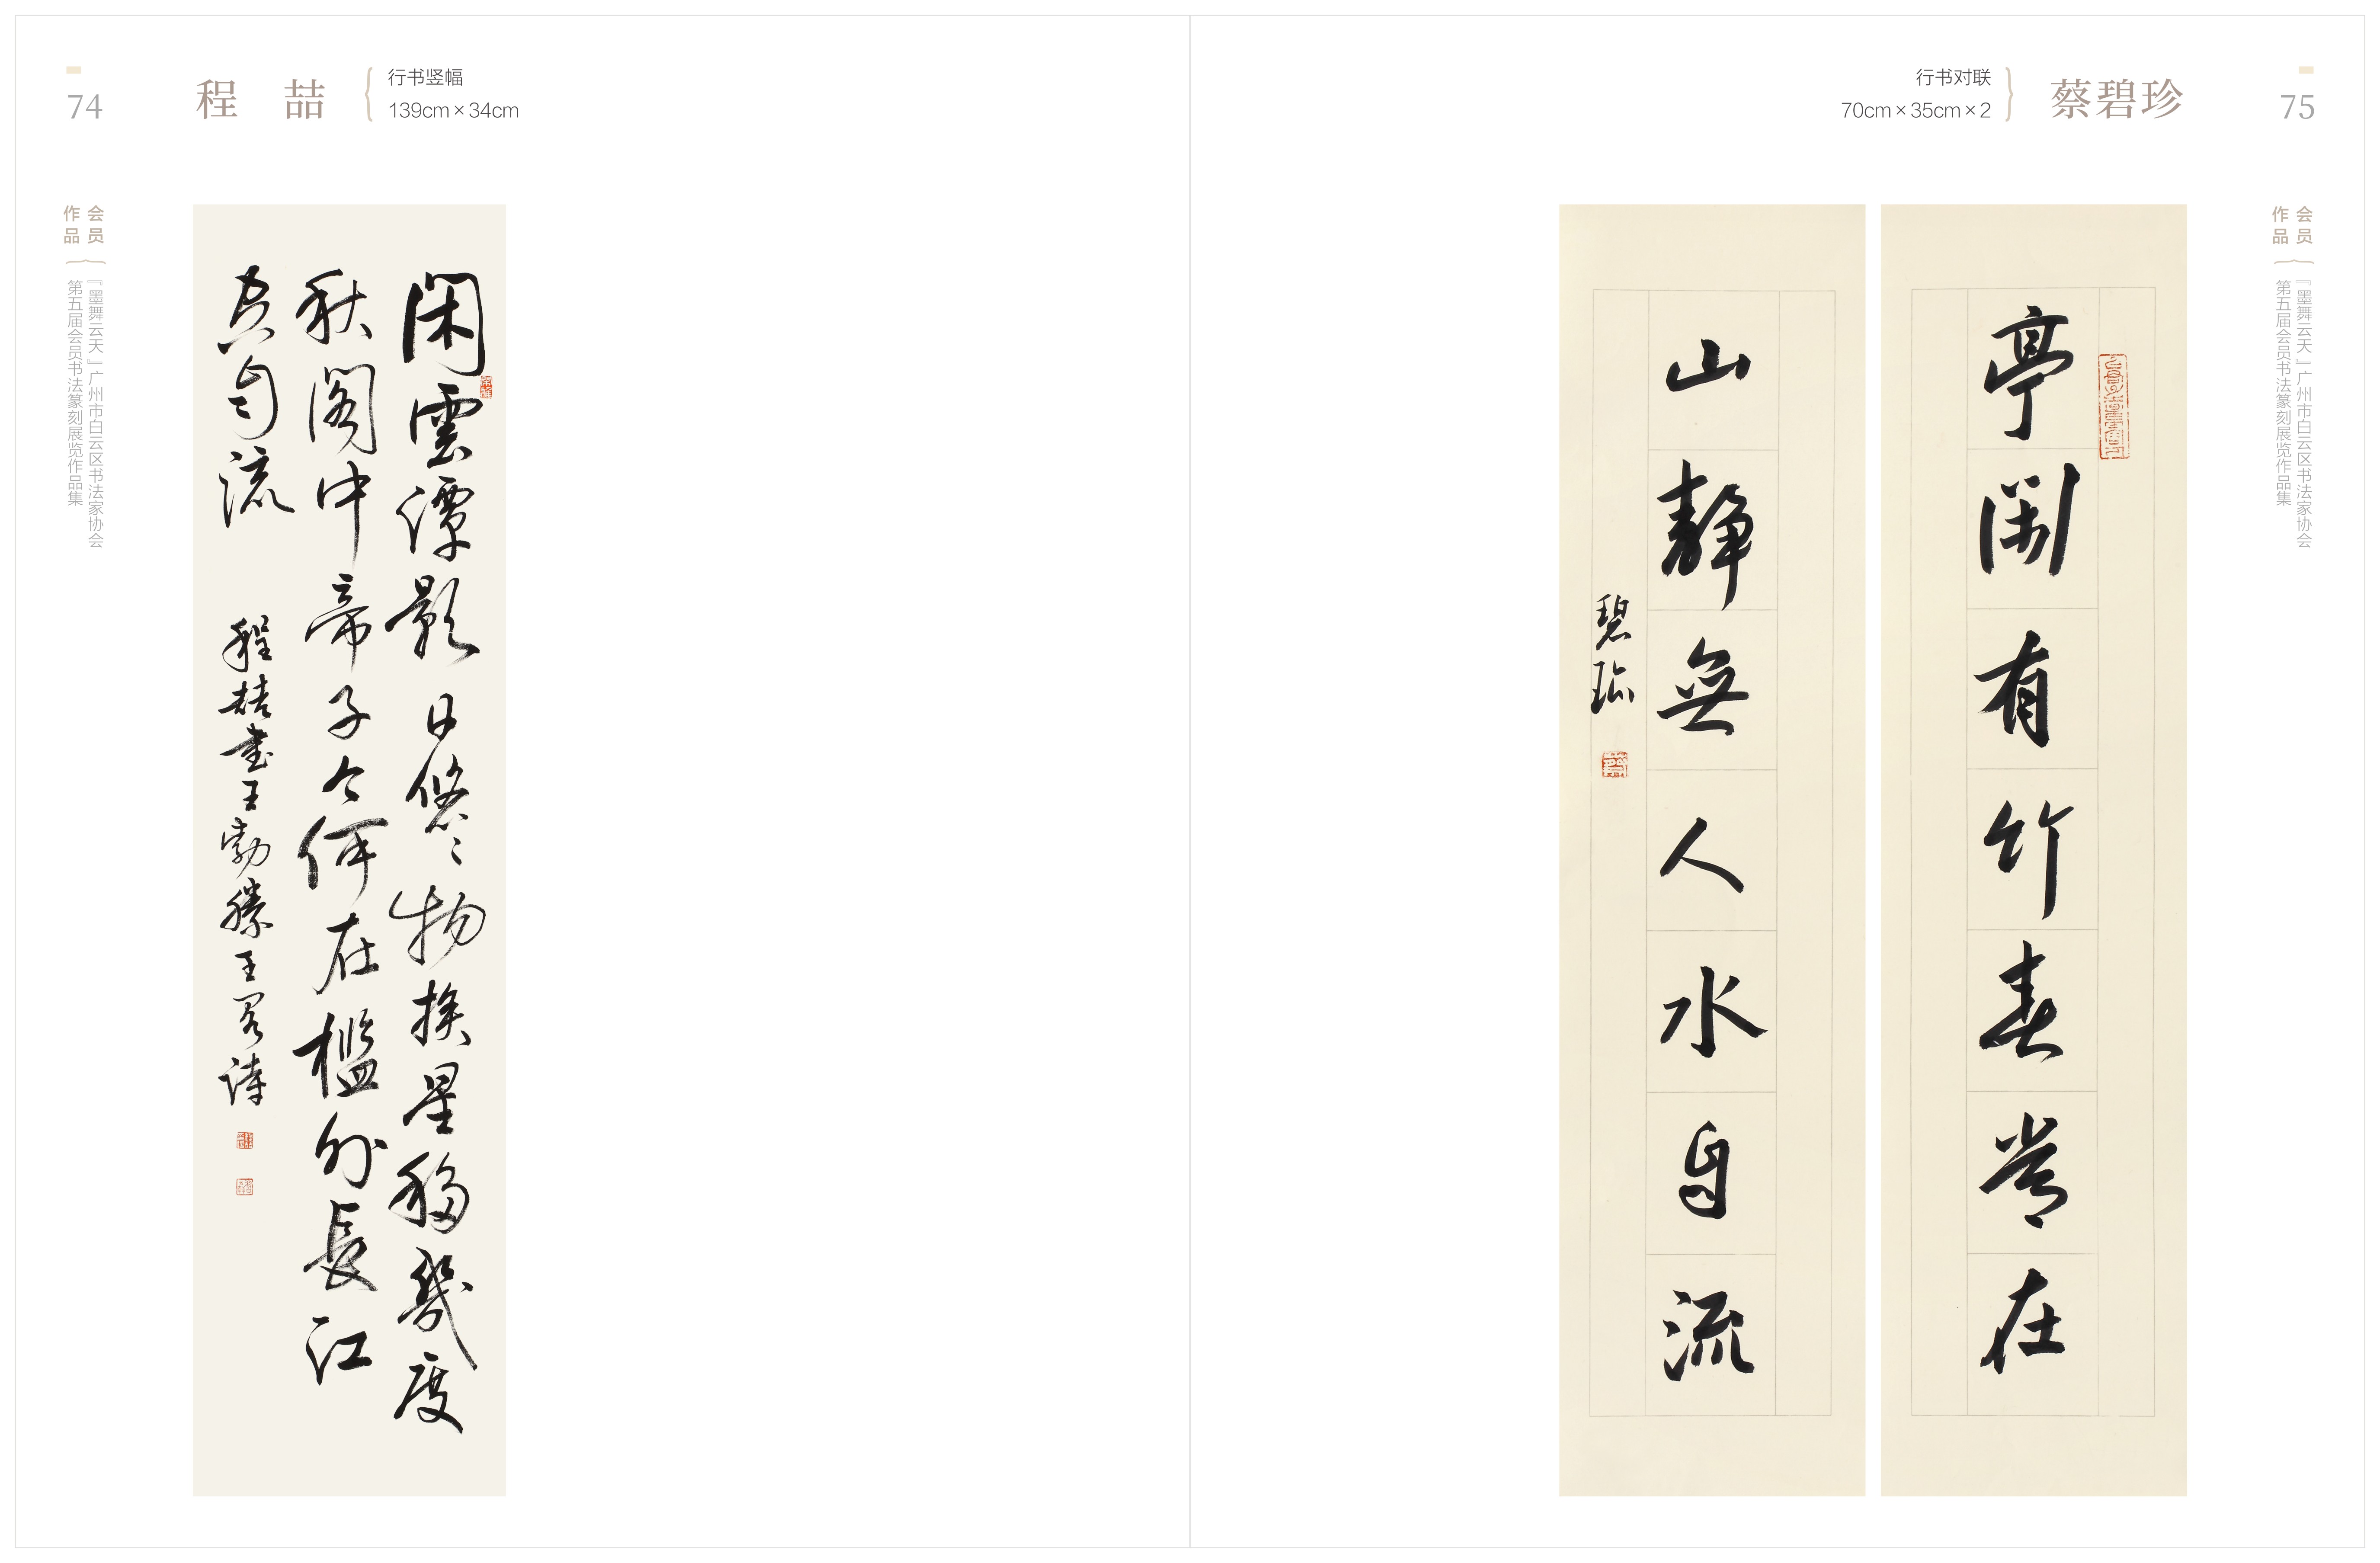 74
程 喆
行书竖幅
139cm×34cm
会员
作品
『墨舞云天』广州市白云区书法家协会
第五届会员书法篆刻展览作品集
閑雲潭影日悠々物換星移幾度
秋閣中帝子今何在檻外長江
空自流
程喆書王勃滕王閣詩
行书对联
70cm×35cm×2
蔡碧珍
75
会员
作品
『墨舞云天』广州市白云区书法家协会
第五届会员书法篆刻展览作品集
亭閑有竹春常在
山靜無人水自流
碧珍